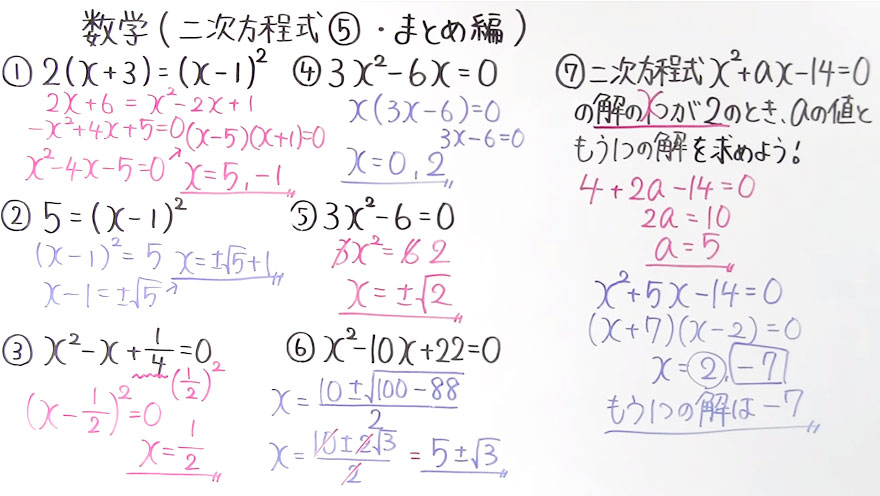 数学(二次方程式⑤・まとめ編)
① 2(x+3)=(x-1)²
2x+6=x²-2x+1
-x²+4x+5=0
x²-4x-5=0
(x-5)(x+1)=0
x=5,-1
② 5=(x-1)²
(x-1)²=5
x-1=±√5
x=±√5+1
③ x²-x+1/4=0
(1/2)²
(x-1/2)²=0
x=1/2
④ 3x²-6x=0
x(3x-6)=0
3x-6=0
x=0,2
⑤ 3x²-6=0
3x²=6 2
x=±√2
⑥ x²-10x+22=0
x=(10±√(100-88))/2
x=(10±2√3)/2=5±√3
⑦ 二次方程式x²+ax-14=0
の解の1つが2のとき、aの値と
もう1つの解を求めよう!
4+2a-14=0
2a=10
a=5
x²+5x-14=0
(x+7)(x-2)=0
x=2,-7
もう1つの解は-7